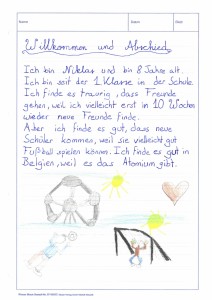 Willkommen und Abschied
Ich bin Niklas und bin 8 Jahre alt.
Ich bin seit der 1 Klasse in der Schule.
Ich finde es traurig, dass Freunde
gehen, weil ich vielleicht erst in 10 Wochen
wieder neue Freunde finde.
Aber ich finde es gut, dass neue
Schüler kommen, weil sie vielleicht gut
Fußball spielen können. Ich finde es gut in
Belgien, weil es das Atomium gibt.